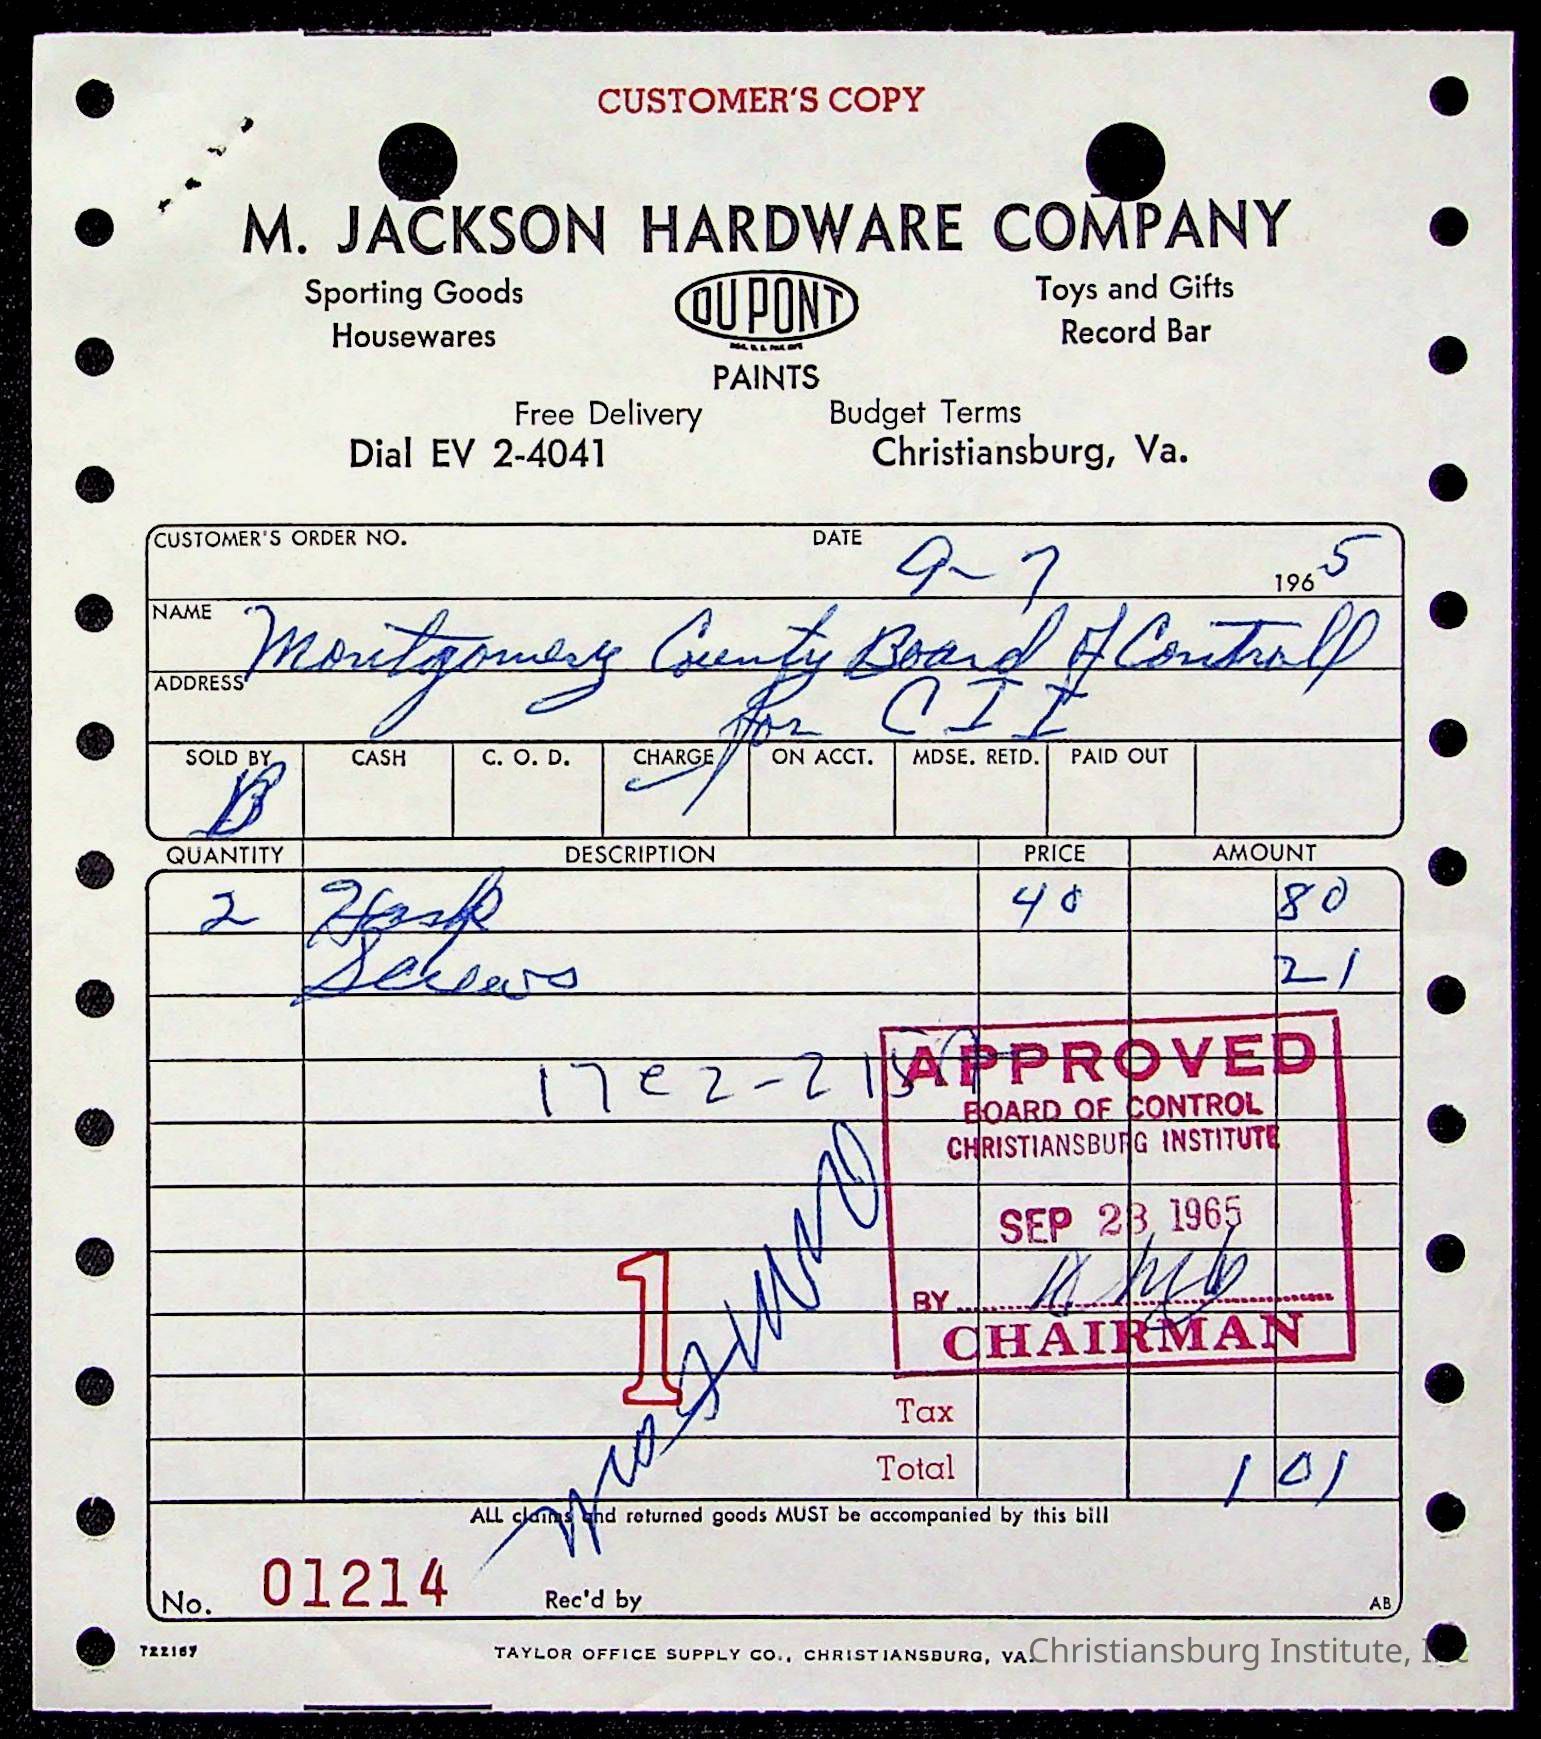 CUSTOMER'S COPY
M. JACKSON HARDWARE COMPANY
Sporting Goods DU PONT Toys and Gifts
Housewares Record Bar
PAINTS
Free Delivery Budget Terms
Dial EV 2-4041 Christiansburg, Va.
CUSTOMER'S ORDER NO. DATE 9-7 1965
NAME Montgomery County Board of Controll
ADDRESS for C I I
SOLD BY CASH C. O. D. CHARGE ON ACCT. MDSE. RETD. PAID OUT
B
QUANTITY DESCRIPTION PRICE AMOUNT
2 Hasp 40 80
Screws 21
17e2-215
APPROVED
BOARD OF CONTROL
CHRISTIANSBURG INSTITUTE
SEP 23 1965
BY
CHAIRMAN
1
Tax
Total 1 01
ALL claims and returned goods MUST be accompanied by this bill
No. 01214 Rec'd by AB
722167 TAYLOR OFFICE SUPPLY CO., CHRISTIANSBURG, VA.
Christiansburg Institute, Inc